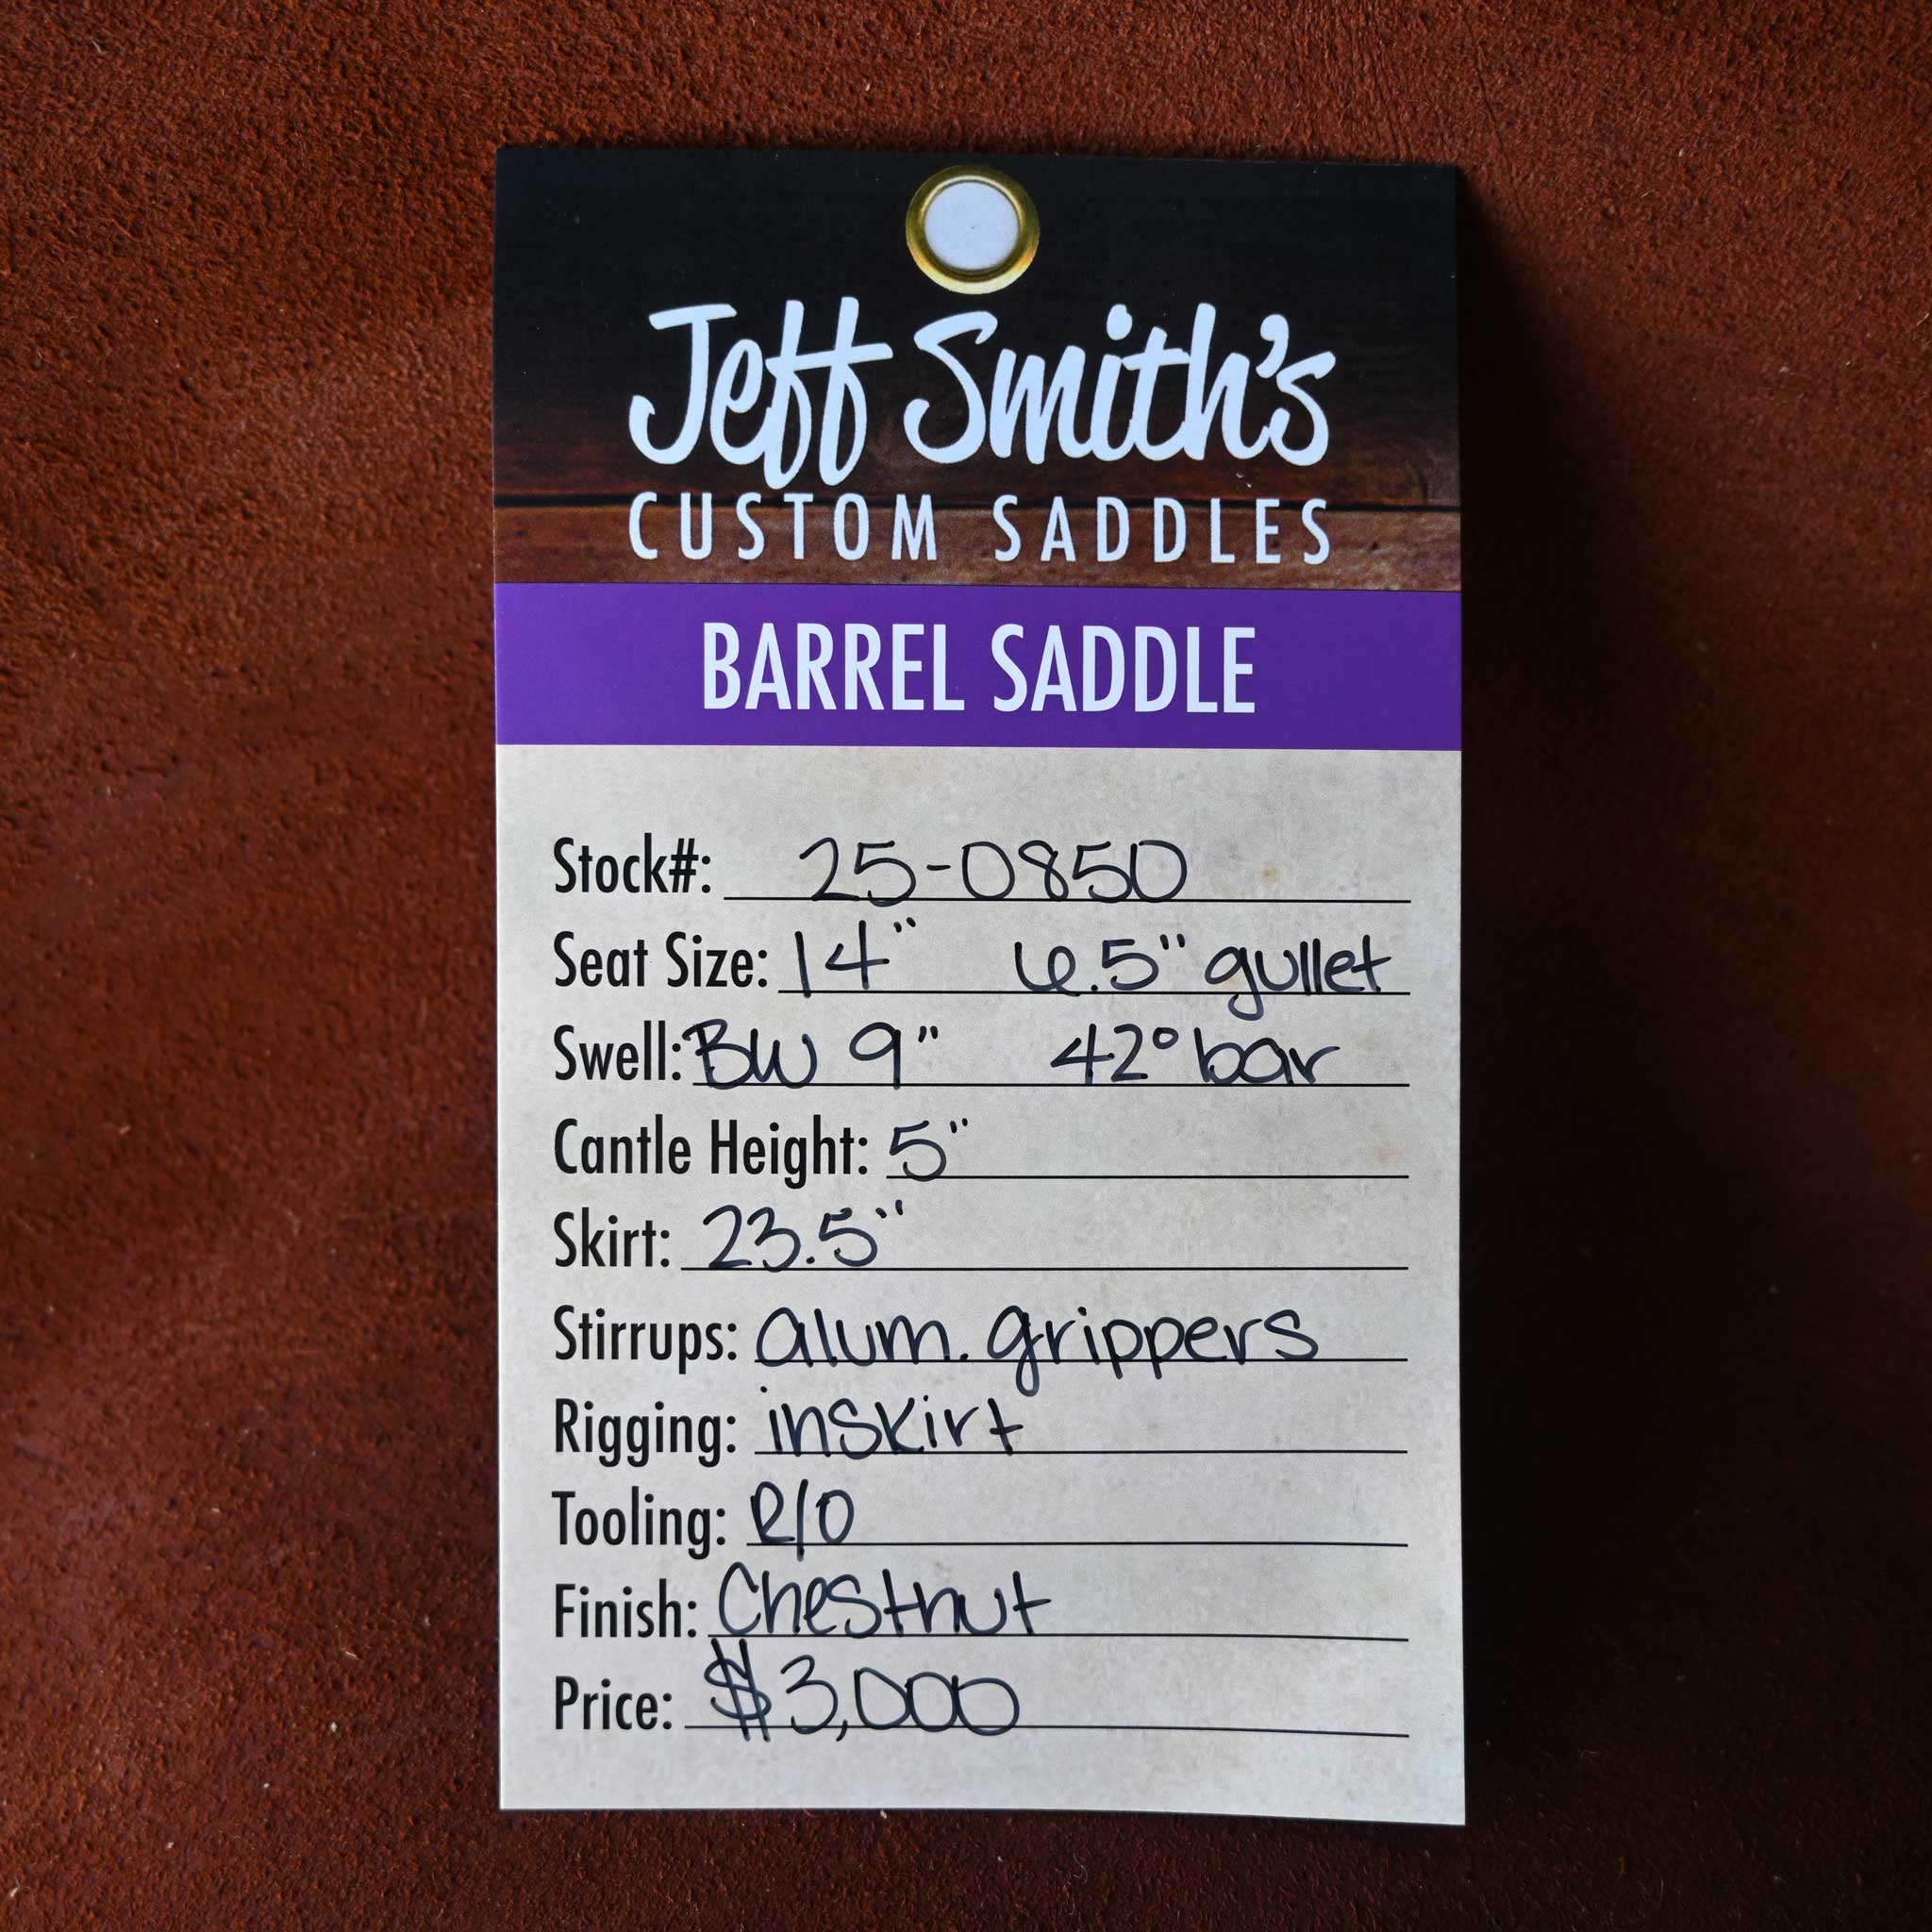 Jeff Smith's
CUSTOM SADDLES
BARREL SADDLE
Stock#: 25-0850
Seat Size: 14" 6.5" gullet
Swell: BW 9" 42° bar
Cantle Height: 5"
Skirt: 23.5"
Stirrups: alum. grippers
Rigging: inskirt
Tooling: R/O
Finish: Chestnut
Price: $3,000